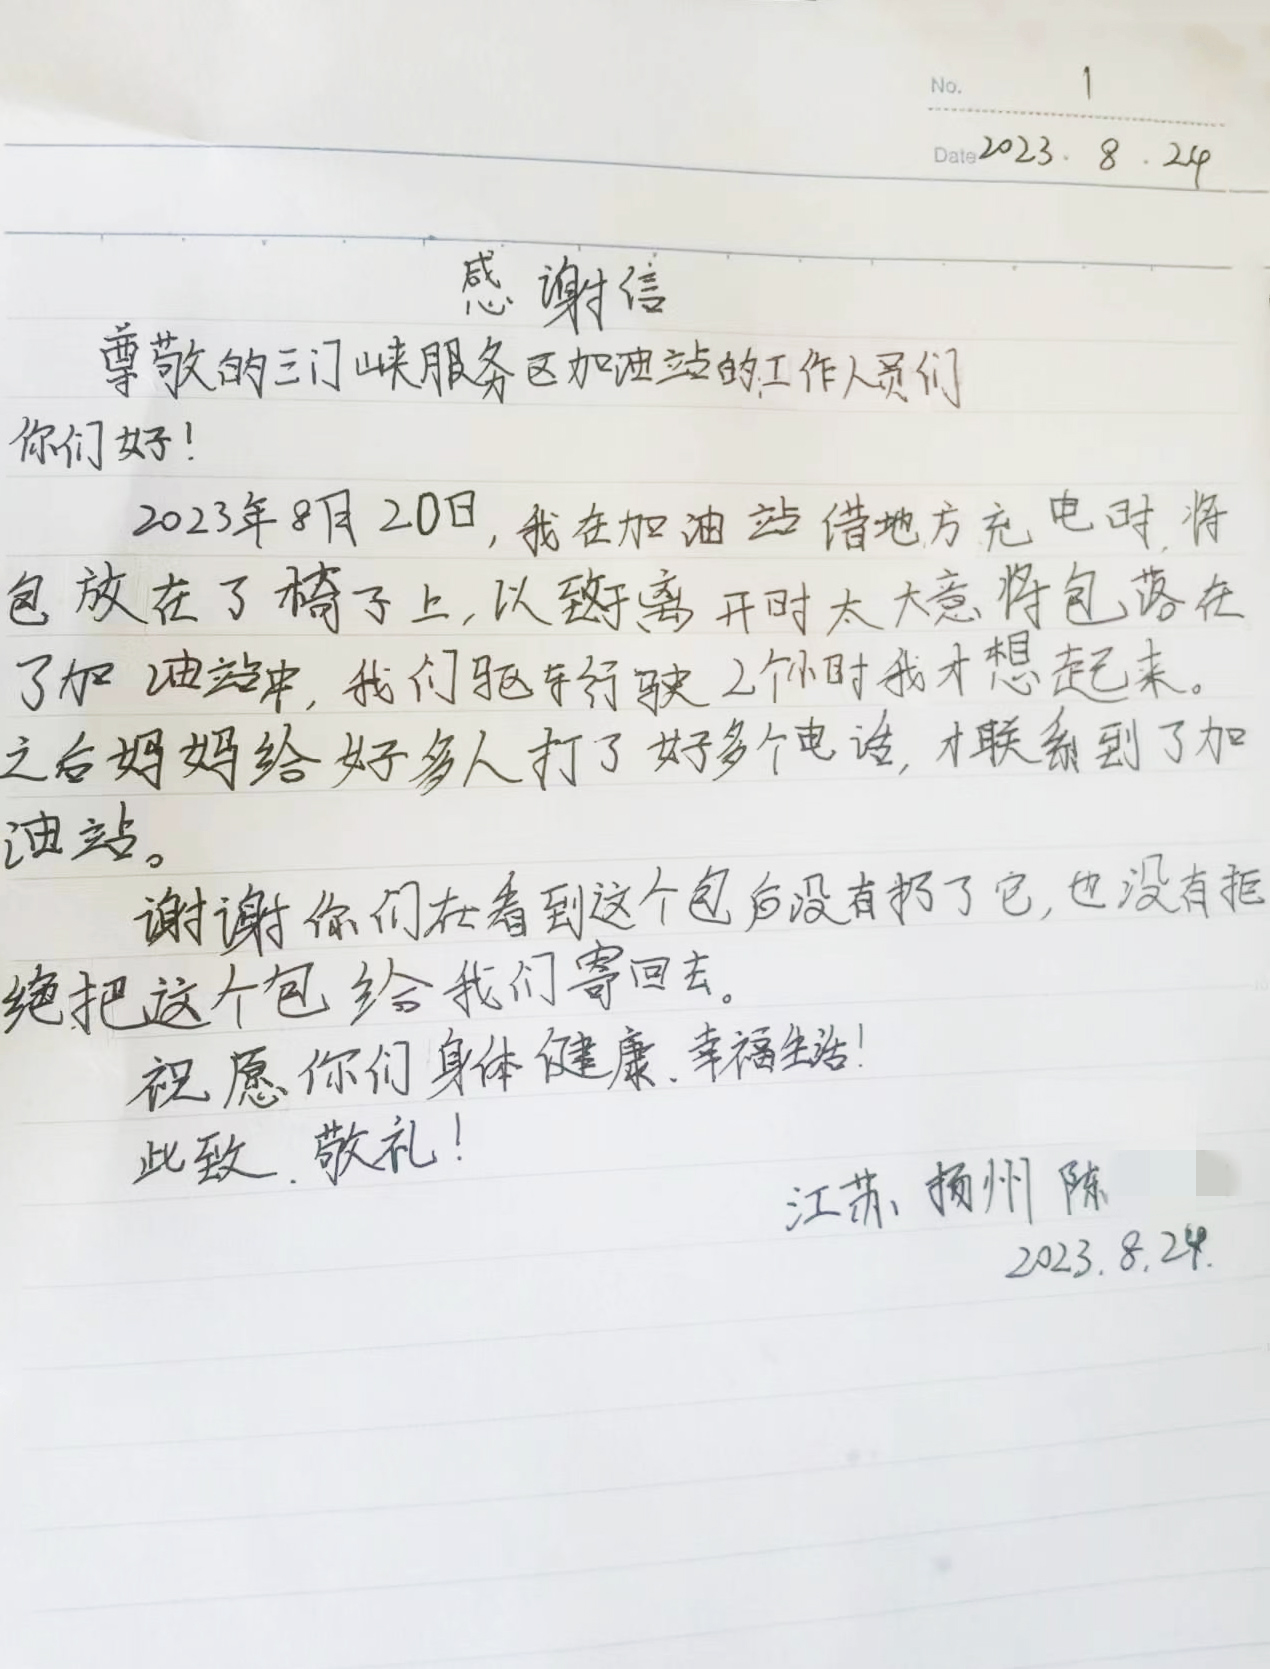 No. 1
Date 2023.8.24
感谢信
尊敬的三门峡服务区加油站的工作人员们
你们好!
2023年8月20日,我在加油站借地方充电时,将
包放在了椅子上,以致于离开时太大意将包落在
了加油站中,我们驱车行驶2个小时我才想起来。
之后妈妈给好多人打了好多个电话,才联系到了加
油站。
谢谢你们在看到这个包后没有扔了它,也没有拒
绝把这个包给我们寄回去。
祝愿你们身体健康、幸福生活!
此致、敬礼!
江苏、扬州 陈
2023.8.24.